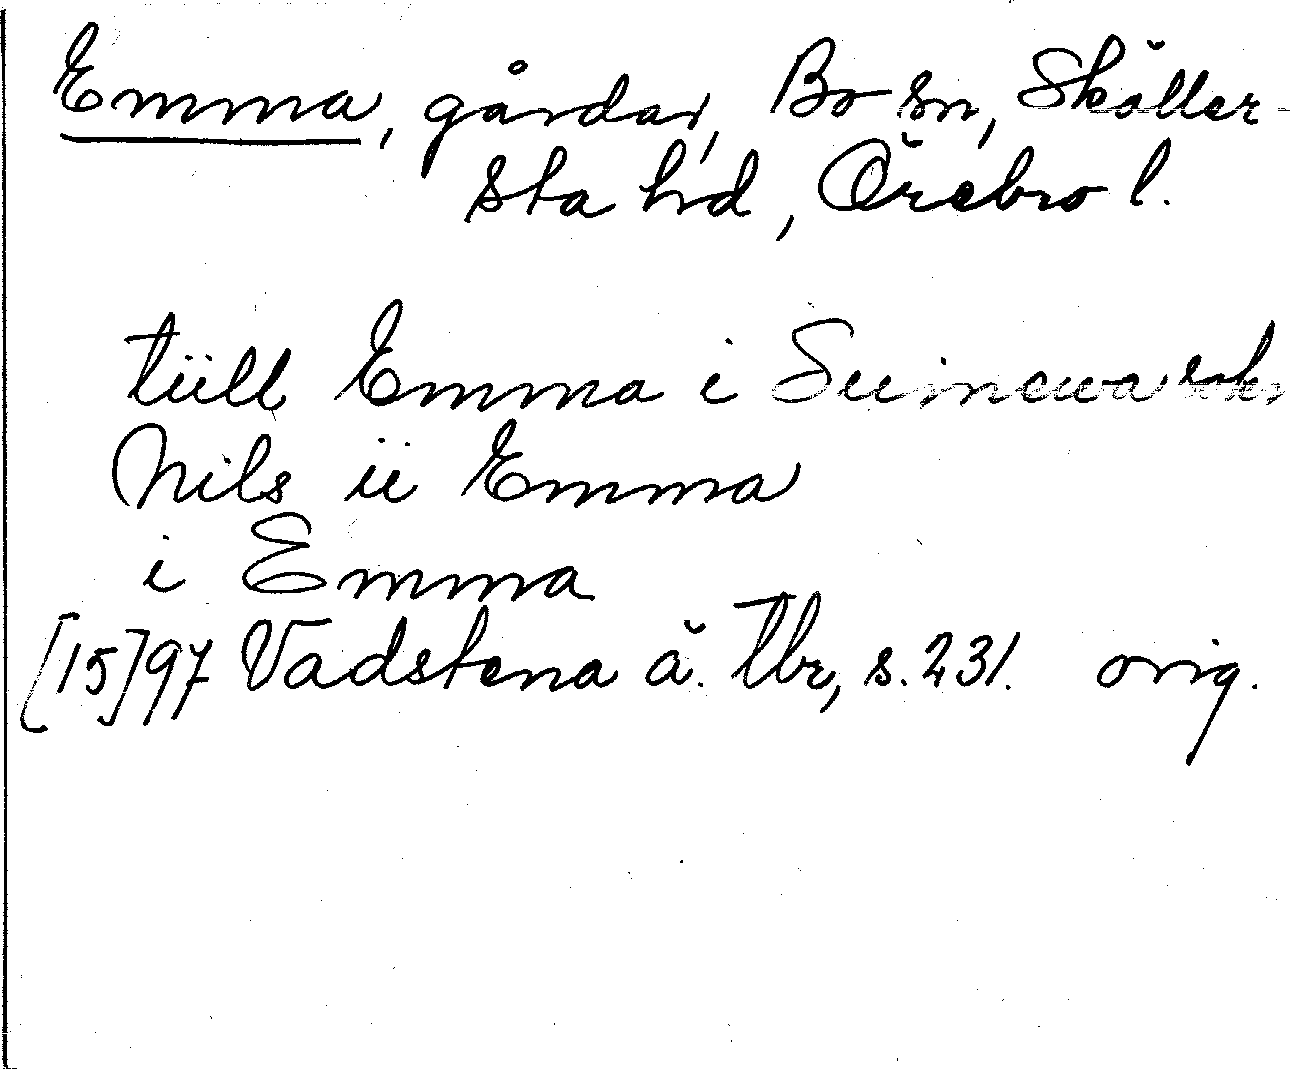 Emma, gårdar, Bo sn, Sköller-
sta hd, Örebro l.
tiill Emma i Suinewa sokn
Nils ii Emma
i Emma
[15]97 Vadstena ä. Tbr, s. 231. orig.